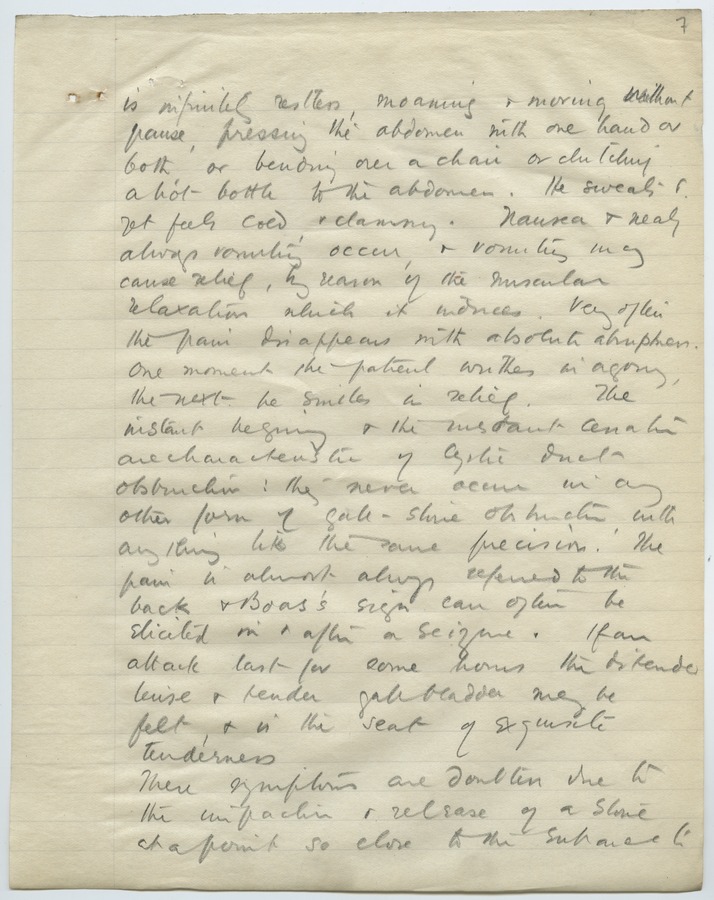 7
is infinitely restless, moaning & moving without
pause, pressing the abdomen with one hand or
both, or bending over a chair or clutching
a hot bottle to the abdomen. He sweats &
yet feels cold, & clammy. Nausea & nearly
always vomiting occur, & vomiting may
cause relief, by reason of the muscular
relaxation which it induces. Very often
the pain disappears with absolute abruptness.
One moment the patient writhes in agony,
the next he smiles in relief. The
instant begining & the instant cessation
are characteristic of cystic duct
obstruction: they never occur in any
other form of gall-stone obstruction with
anything like the same precision. The
pain is almost always referred to the
back & Boas's sign can often be
elicited in & after a seizure. If an
attack last for some hours the distended
tense & tender gall bladder may be
felt, & is the seat of exquisite
tenderness
These symptoms are doubtless due to
the impaction & release of a stone
at a point so close to the entrance to